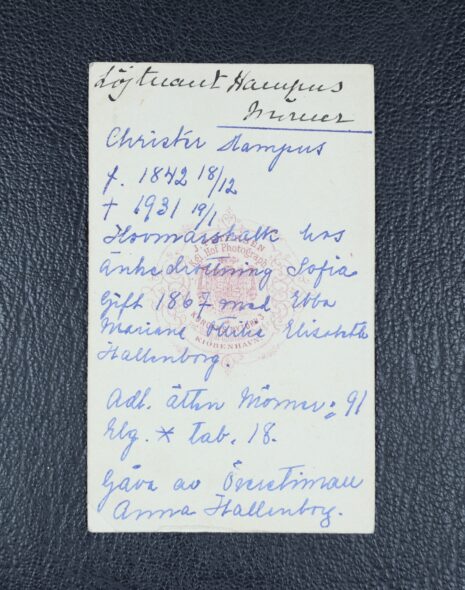 Löjtnant Hampus
Mörner
Christer Hampus
f. 1842 18/12
† 1931 19/1
Hovmarskalk hos
änkedrottning Sofia
Gift 1867 med Ebba
Mariane Elisabeth
Hallenborg.
Adl. ätten Mörner: 91
Elg. * tab. 18.
Gåva av Överstinnan
Anna Hallenborg.
Kgl. Hof Photograph
KIÖBENHAVN